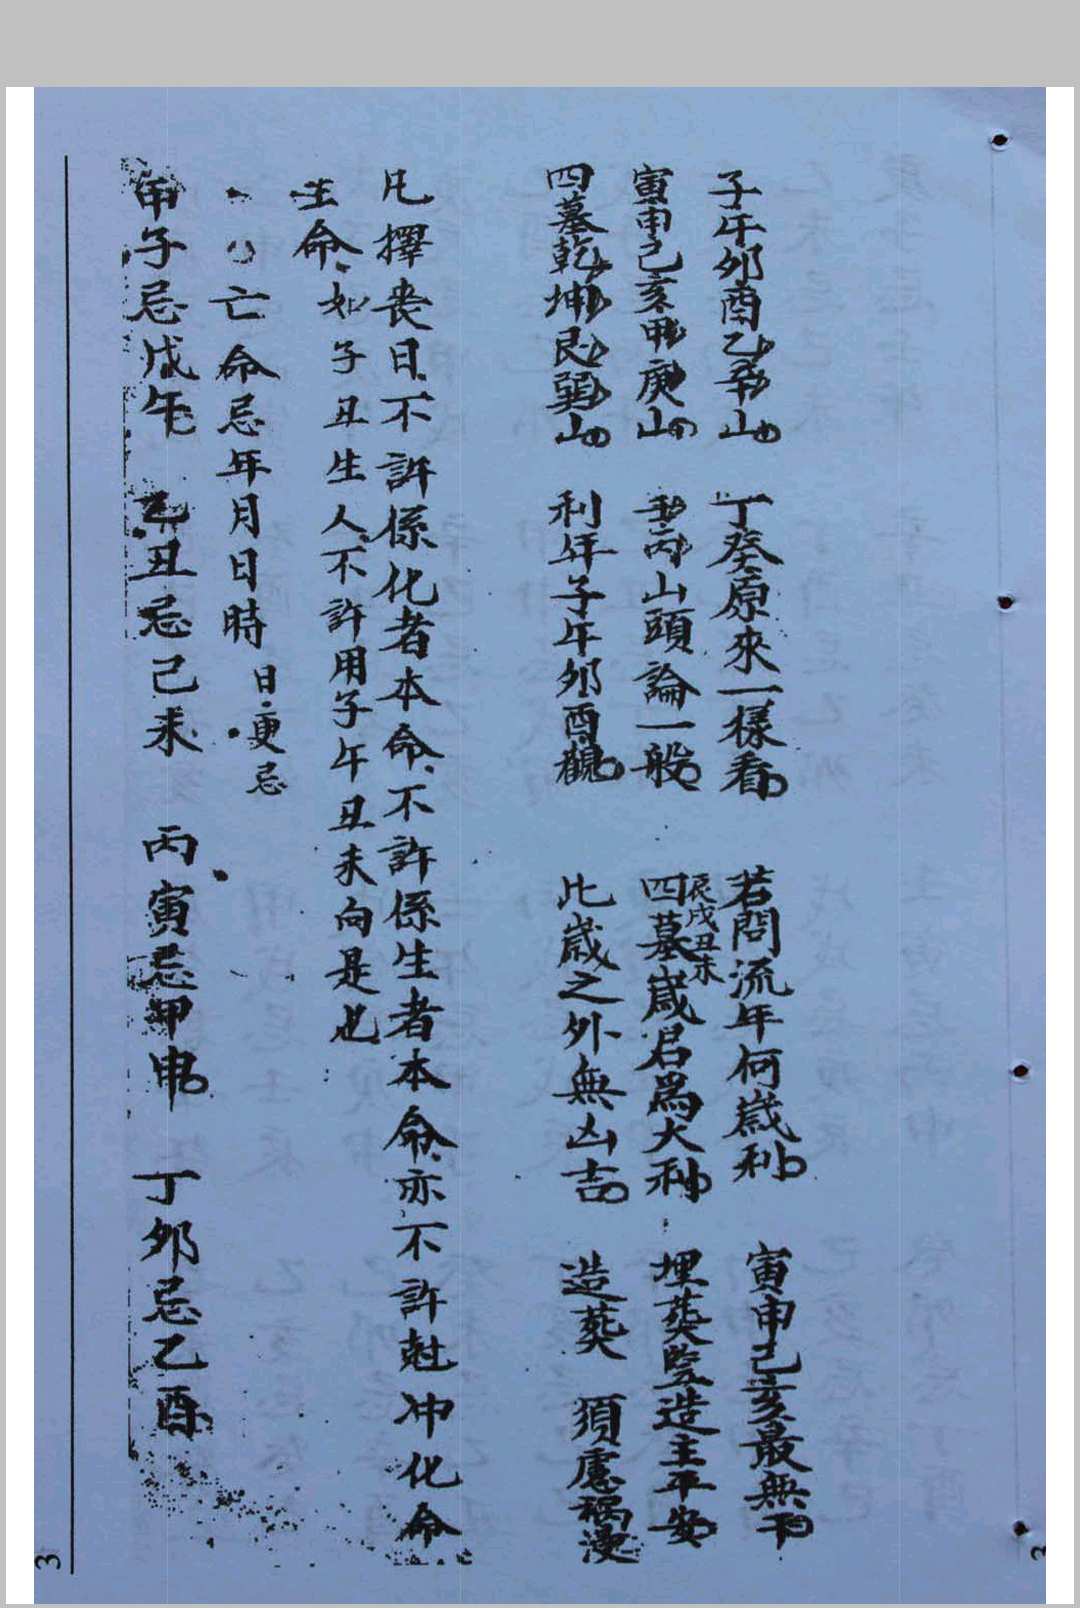 子午卯酉乙辛山 丁癸原來一樣看 若問流年何歲利 寅申己亥最無干
寅申己亥甲庚山 壬丙山頭論一般 四墓歲君爲大利 埋葬豎造主平安
辰戌丑未
四墓乾坤艮巽山 利年子午卯酉觀 比歲之外無凶吉 造葬須慮禍
凡擇丧日不許係化者本命不許係生者本命亦不許尅冲化命
生命如子丑生人不許用子午丑未向是也
亡命忌年月日時 日更忌
甲子忌戊午 乙丑忌己未 丙寅忌甲申 丁卯忌乙酉
3
3